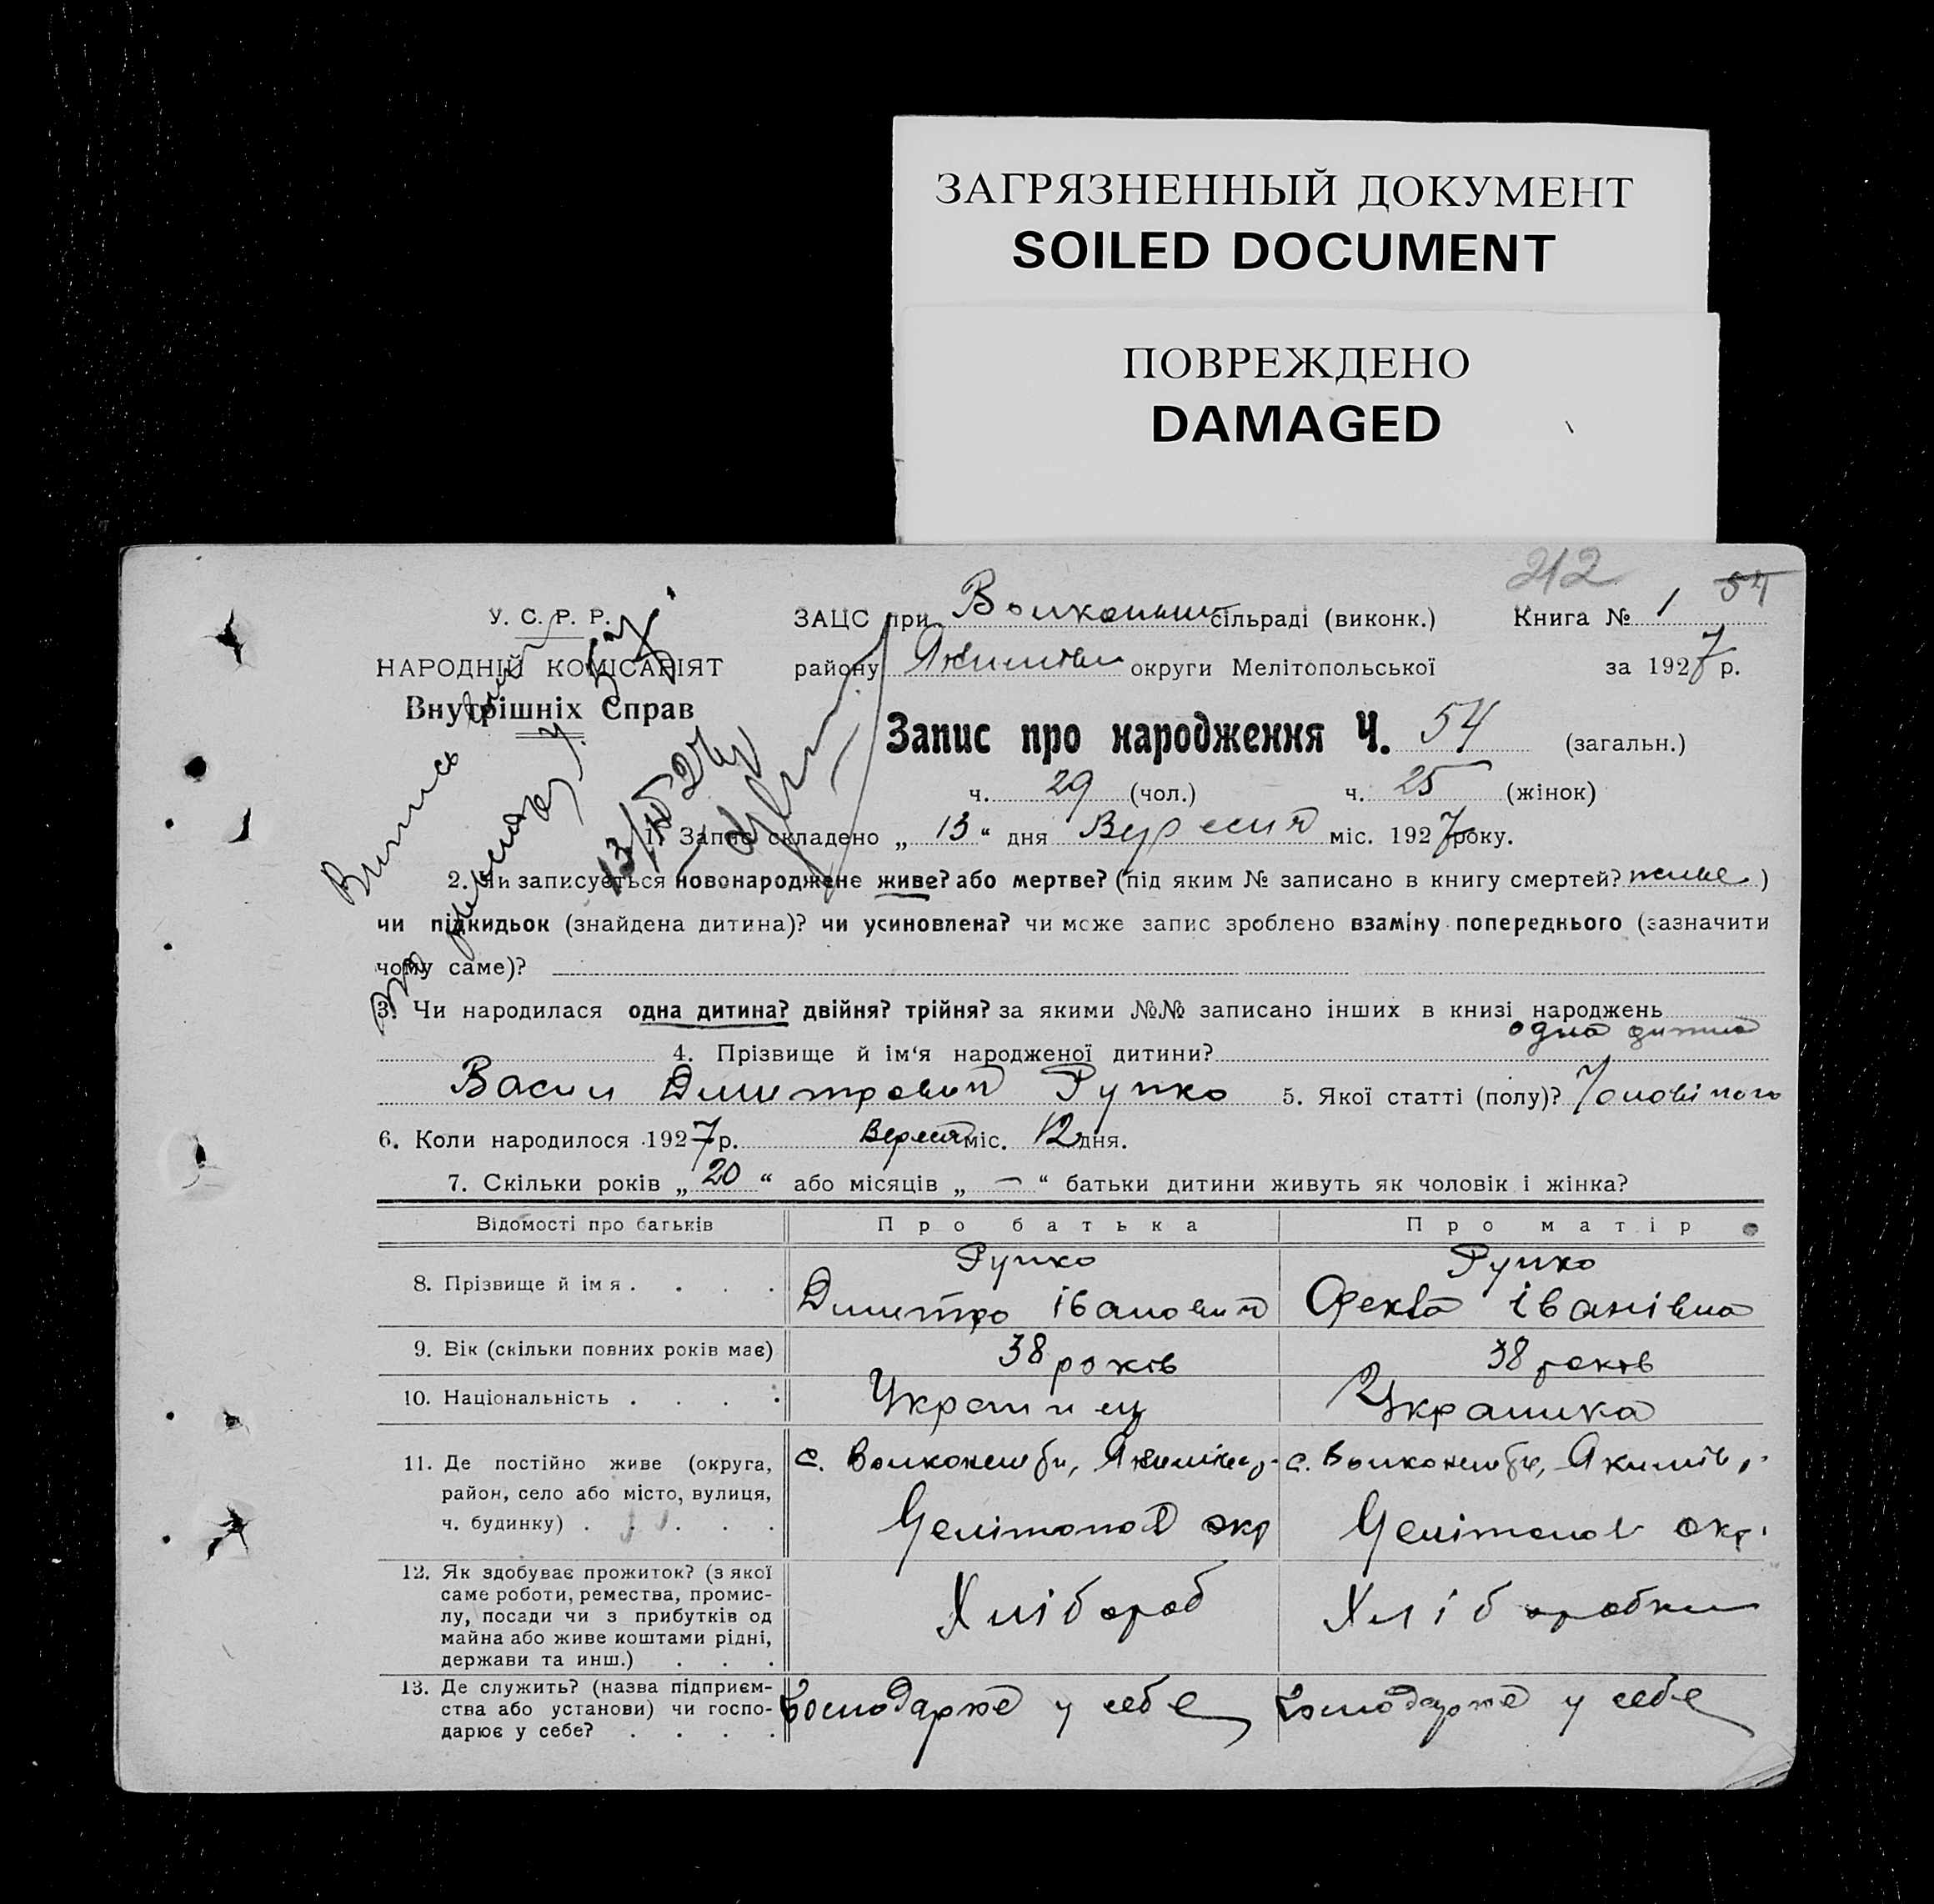 ЗАГРЯЗНЕННЫЙ ДОКУМЕНТ
SOILED DOCUMENT
ПОВРЕЖДЕНО
DAMAGED
212
54
У. С. Р. Р.
НАРОДНІЙ КОМІСАРІЯТ
Внутрішніх Справ
ЗАЦС при сільраді (виконк.) Книга № 1
району округи Мелітопольської за 1927 р.
Запис про народження Ч. 54 (загальн.)
ч. 29 (чол.) ч. 25 (жінок)
Випись
1. Запис складено „ 13 “ дня Вересня міс. 1927 року.
2. Чи записується новонароджене живе? або мертве? (під яким № записано в книгу смертей? живе )
чи підкидьок (знайдена дитина)? чи усиновлена? чи може запис зроблено взаміну попереднього (зазначити
чому саме)?
3. Чи народилася одна дитина? двійня? трійня? за якими №№ записано інших в книзі народжень
одна дитина
4. Прізвище й ім‘я народженої дитини?
Васил Димитрович Рупко 5. Якої статті (полу)? Чоловічого
6. Коли народилося 1927 р. Вересня міс. 12 дня.
7. Скільки років „ 20 “ або місяців „ — “ батьки дитини живуть як чоловік і жінка?
Відомості про батьків Про батька Про матір
8. Прізвище й імя . . . . Рупко Димитро Іванович Рупко Іванівна
9. Вік (скільки повних років має) 38 років 38 років
10. Національність . . . . Украинец Украинка
11. Де постійно живе (округа,
район, село або місто, вулиця,
ч. будинку) . . . . .
с. Мелітопол окр
с. Мелітопол окр.
12. Як здобуває прожиток? (з якої
саме роботи, ремества, промис-
лу, посади чи з прибутків од
майна або живе коштами рідні,
держави та инш.) . . .
Хлібороб Хліборобка
13. Де служить? (назва підприєм-
ства або установи) чи госпо-
дарює у себе? . . . .
Господарює у себе Господарює у себе